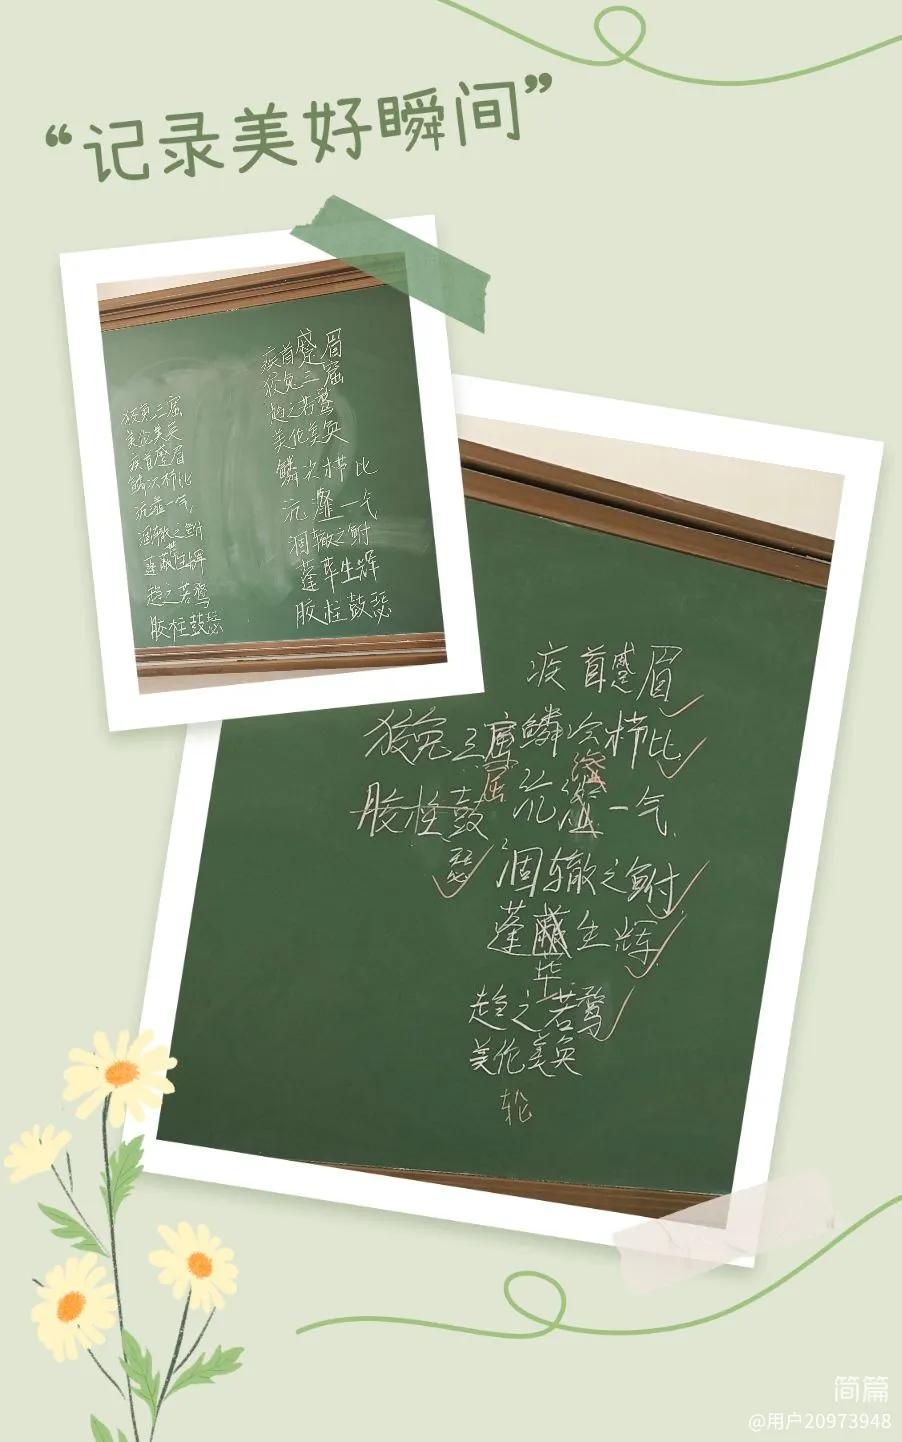 “记录美好瞬间”
疾首蹙眉
狡兔三窟
趋之若鹜
美伦美奂
鳞次栉比
沆瀣一气
涸辙之鲋
蓬荜生辉
胶柱鼓瑟
狡兔三窟
美伦美奂
疾首蹙眉
鳞次栉比
沆瀣一气
涸辙之鲋
生辉
趋之若鹜
胶柱鼓瑟
疾首蹙眉
狡兔三窟 鳞次栉比
窟
胶柱鼓 沆 一气
瑟 涸辙之鲋
蓬 生辉
荜
趋之若鹜
美伦美奂
轮
简篇
@用户20973948